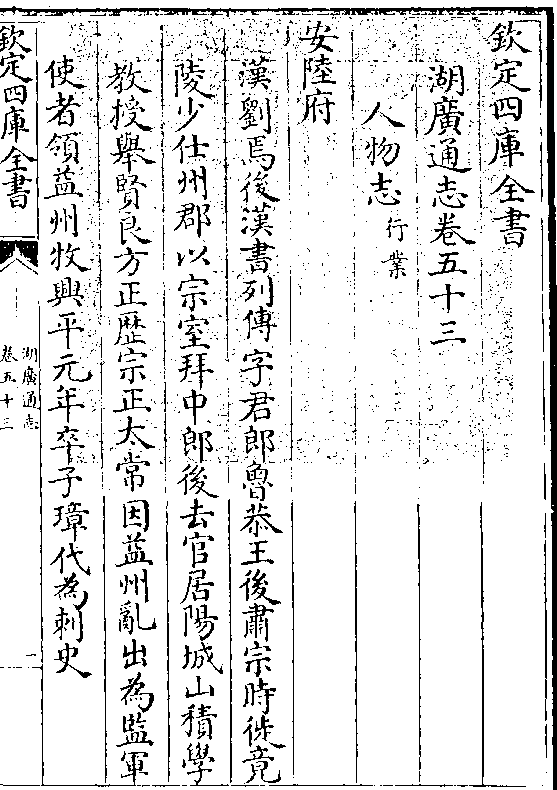 欽定四庫全書
湖廣通志卷五十三
人物志行業
安陸府
漢劉焉後漢書列傳字君郎魯恭王後肅宗時徙竟
陵少仕州郡以宗室拜中郎後去官居陽城山積學
教授舉賢良方正歴宗正太常因益州亂出為監軍
使者領益州牧興平元年卒子璋代為刺史
欽定四庫全書
湖廣通志
卷五十三
一